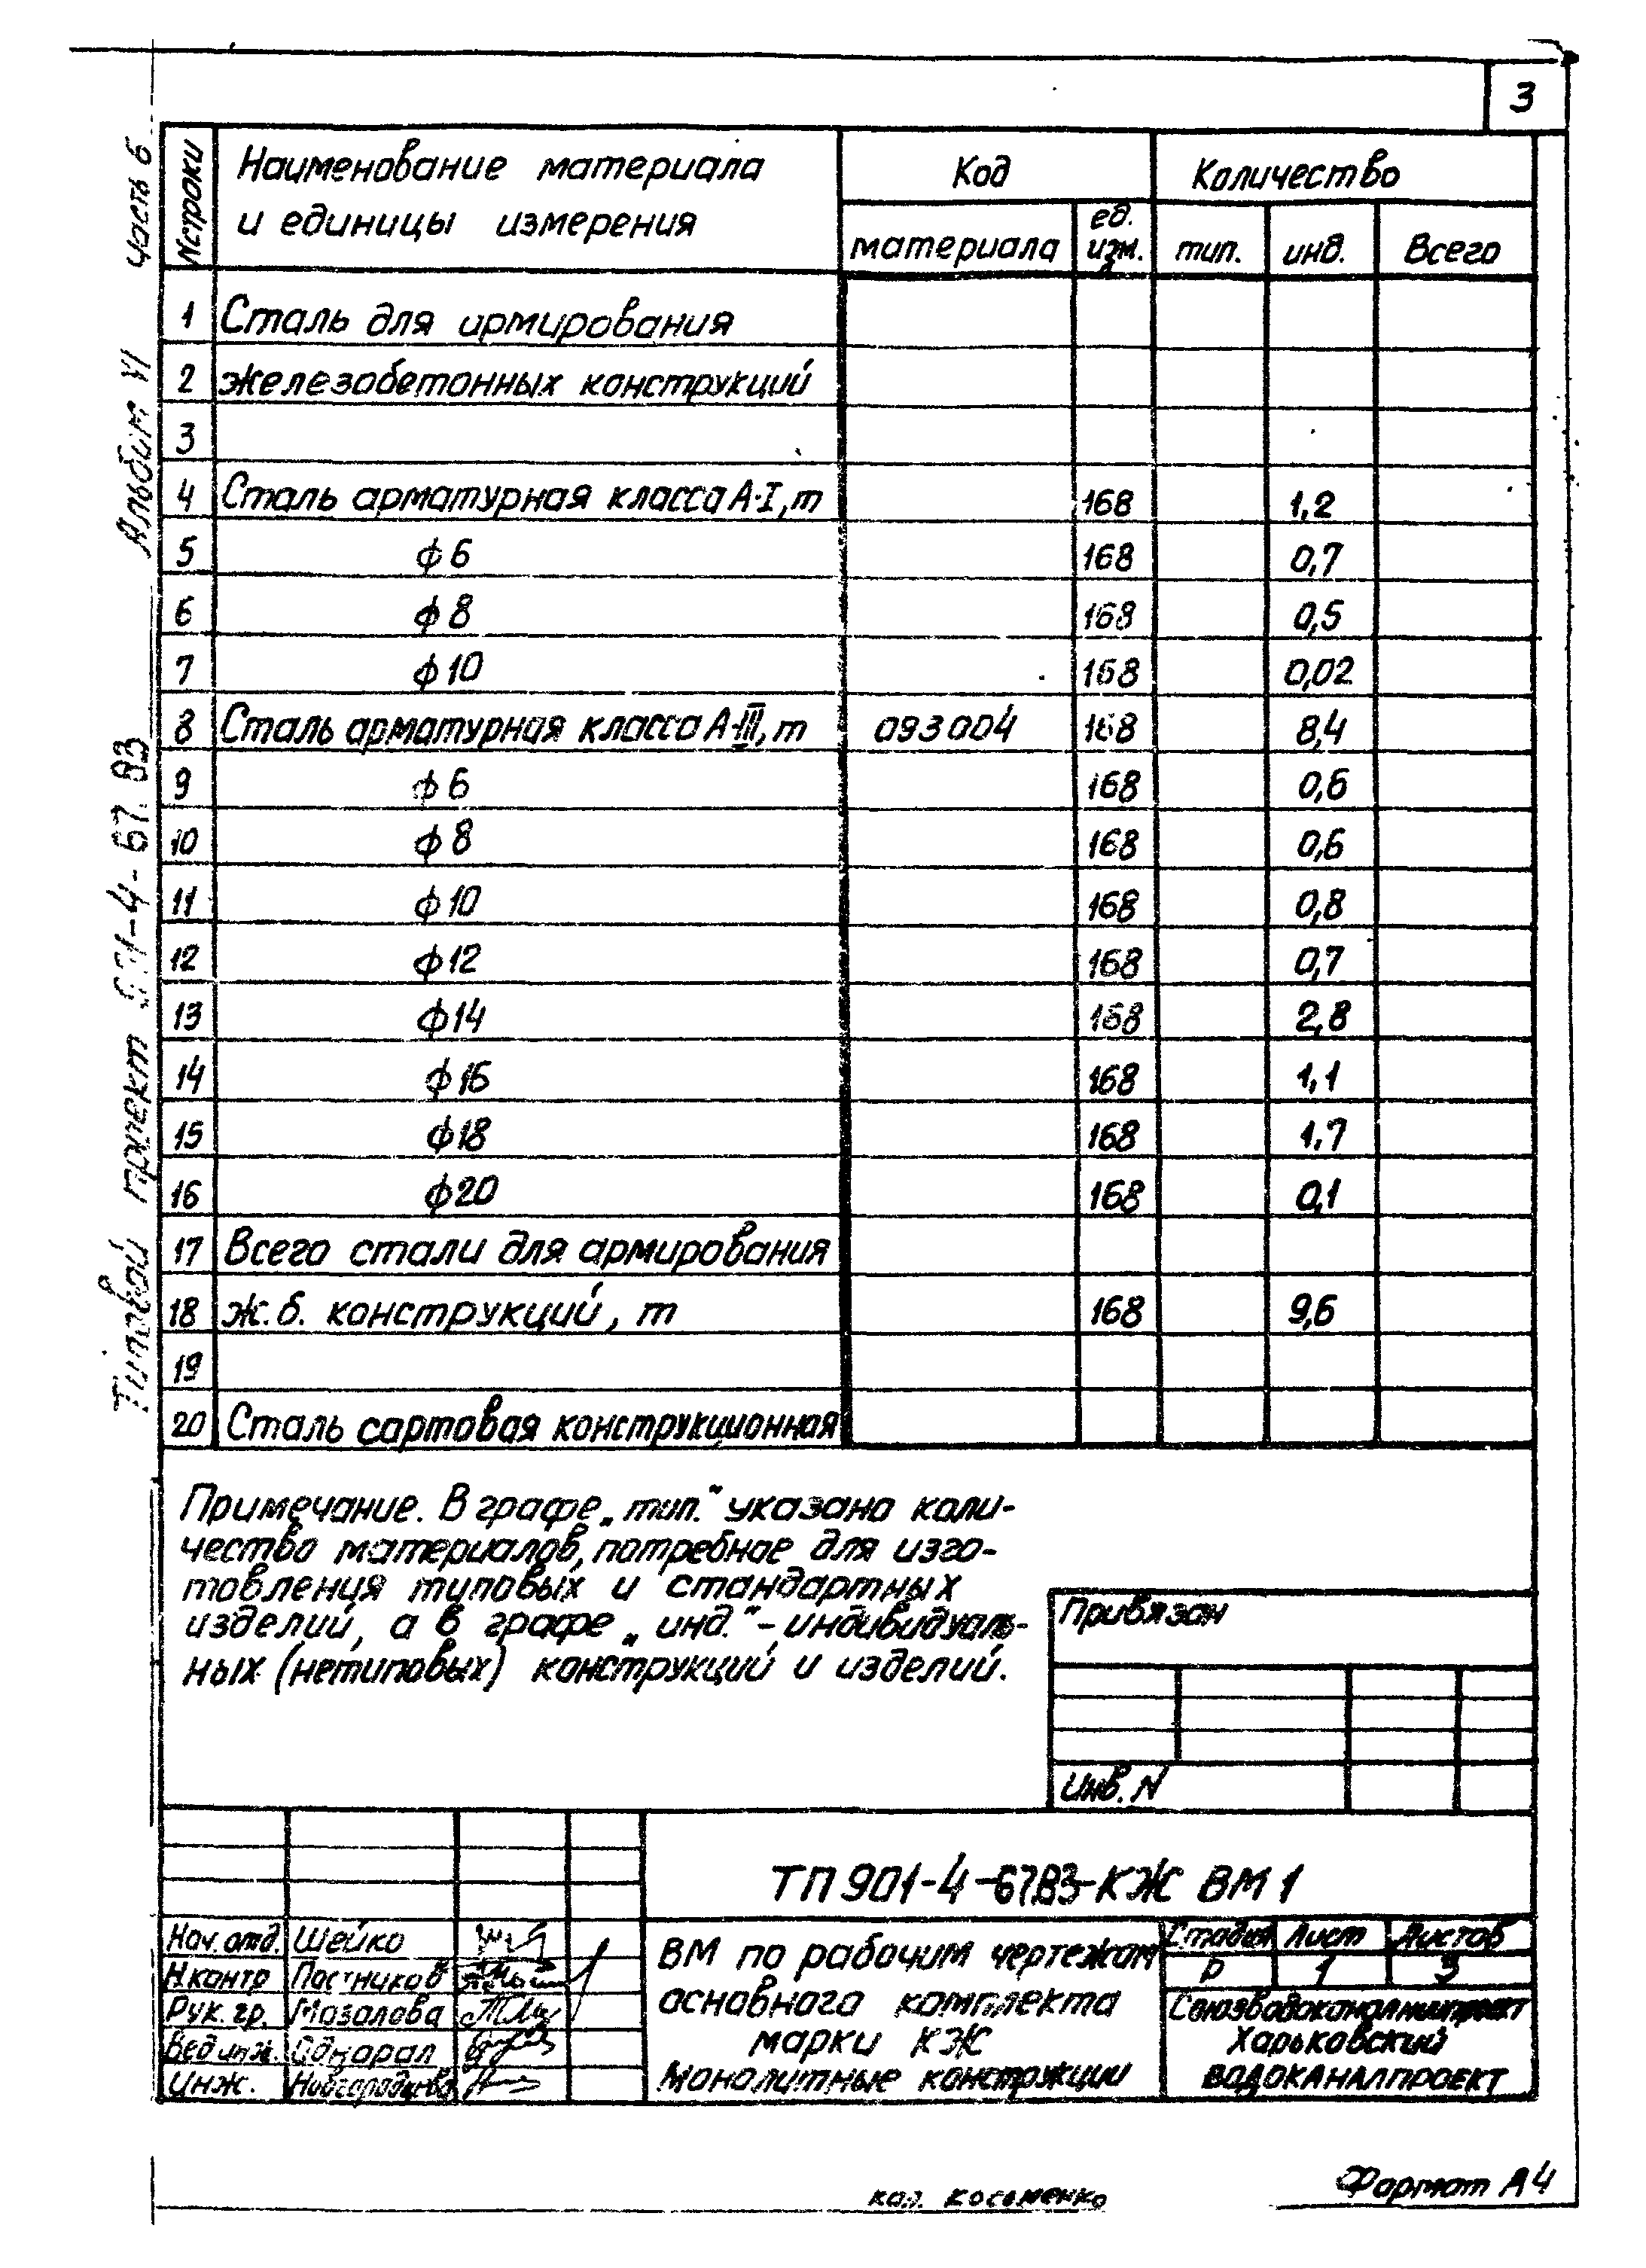 3
Nстроки
Наименование материала
и единицы измерения
Код
Количество
материала
ед.
изм.
тип.
инд.
Всего
1 Сталь для армирования
2 железобетонных конструкций
3
4 Сталь арматурная класса А-I, т 168 1,2
5 ф6 168 0,7
6 ф8 168 0,5
7 ф10 168 0,02
8 Сталь арматурная класса А-III, т 093004 168 8,4
9 ф6 168 0,6
10 ф8 168 0,6
11 ф10 168 0,8
12 ф12 168 0,7
13 ф14 168 2,8
14 ф16 168 1,1
15 ф18 168 1,7
16 ф20 168 0,1
17 Всего стали для армирования
18 ж.б. конструкций, т 168 9,6
19
20 Сталь сортовая конструкционная
Типовой проект 901-4-67.83 Альбом VI часть 6
Примечание. В графе „тип.“ указано коли-
чество материалов, потребное для изго-
товления типовых и стандартных
изделий, а в графе „инд.“ - индивидуаль-
ных (нетиповых) конструкций и изделий.
Привязан
Инв. N
ТП 901-4-67.83-КЖ ВМ 1
Нач. отд. Шейко
Н.контр Постников
Рук. гр. Мазалова
Вед инж. Однорал
Инж.
ВМ по рабочим чертежам
основного комплекта
марки КЖ
Монолитные конструкции
Стадия Лист Листов
Р 1 3
Союзводоканалниипроект
Харьковский
ВОДОКАНАЛПРОЕКТ
кол. Косоменко
Формат А4